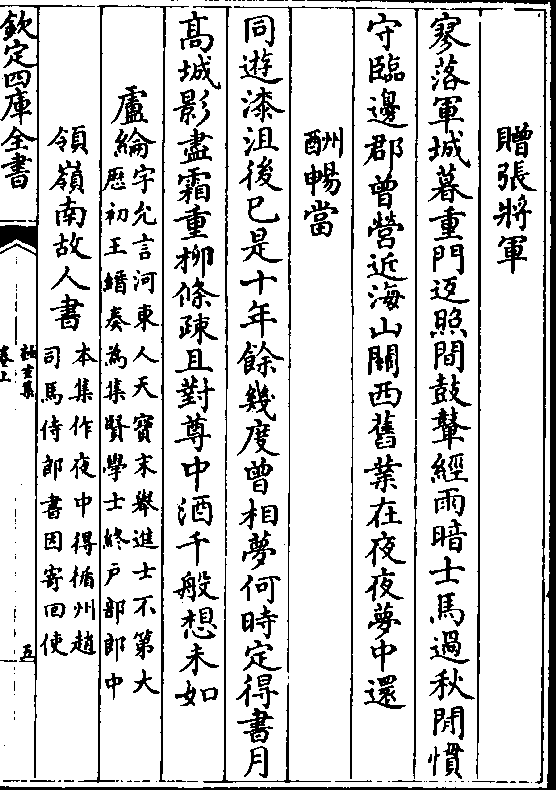 贈張將軍
寥落軍城暮重門返照間鼓鼙經雨暗士馬過秋閒慣
守臨邊郡曾營近海山關西舊業在夜夜夢中還
酬暢當
同遊漆沮後已是十年餘幾度曾相夢何時定得書月
髙城影盡霜重柳條疎且對尊中酒千般想未如
盧綸字允言河東人天寶末舉進士不第大
厯初王縉奏為集賢學士終戸部郎中
領嶺南故人書本集作夜中得循州趙
司馬侍郎書因寄回使
欽定四庫全書
極玄集
卷上
五